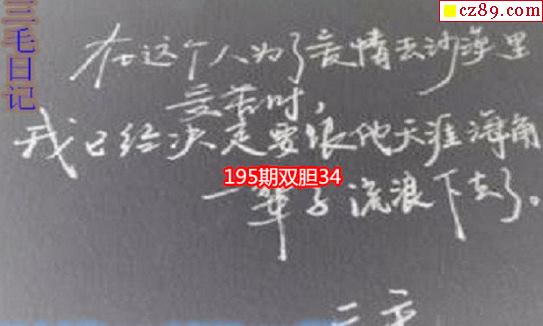 三毛日记
cz89.com
在这个人为了爱情去沙漠里
受苦时,
我已经决定要跟他天涯海角
195期双胆34
一辈子流浪下去了。
三毛